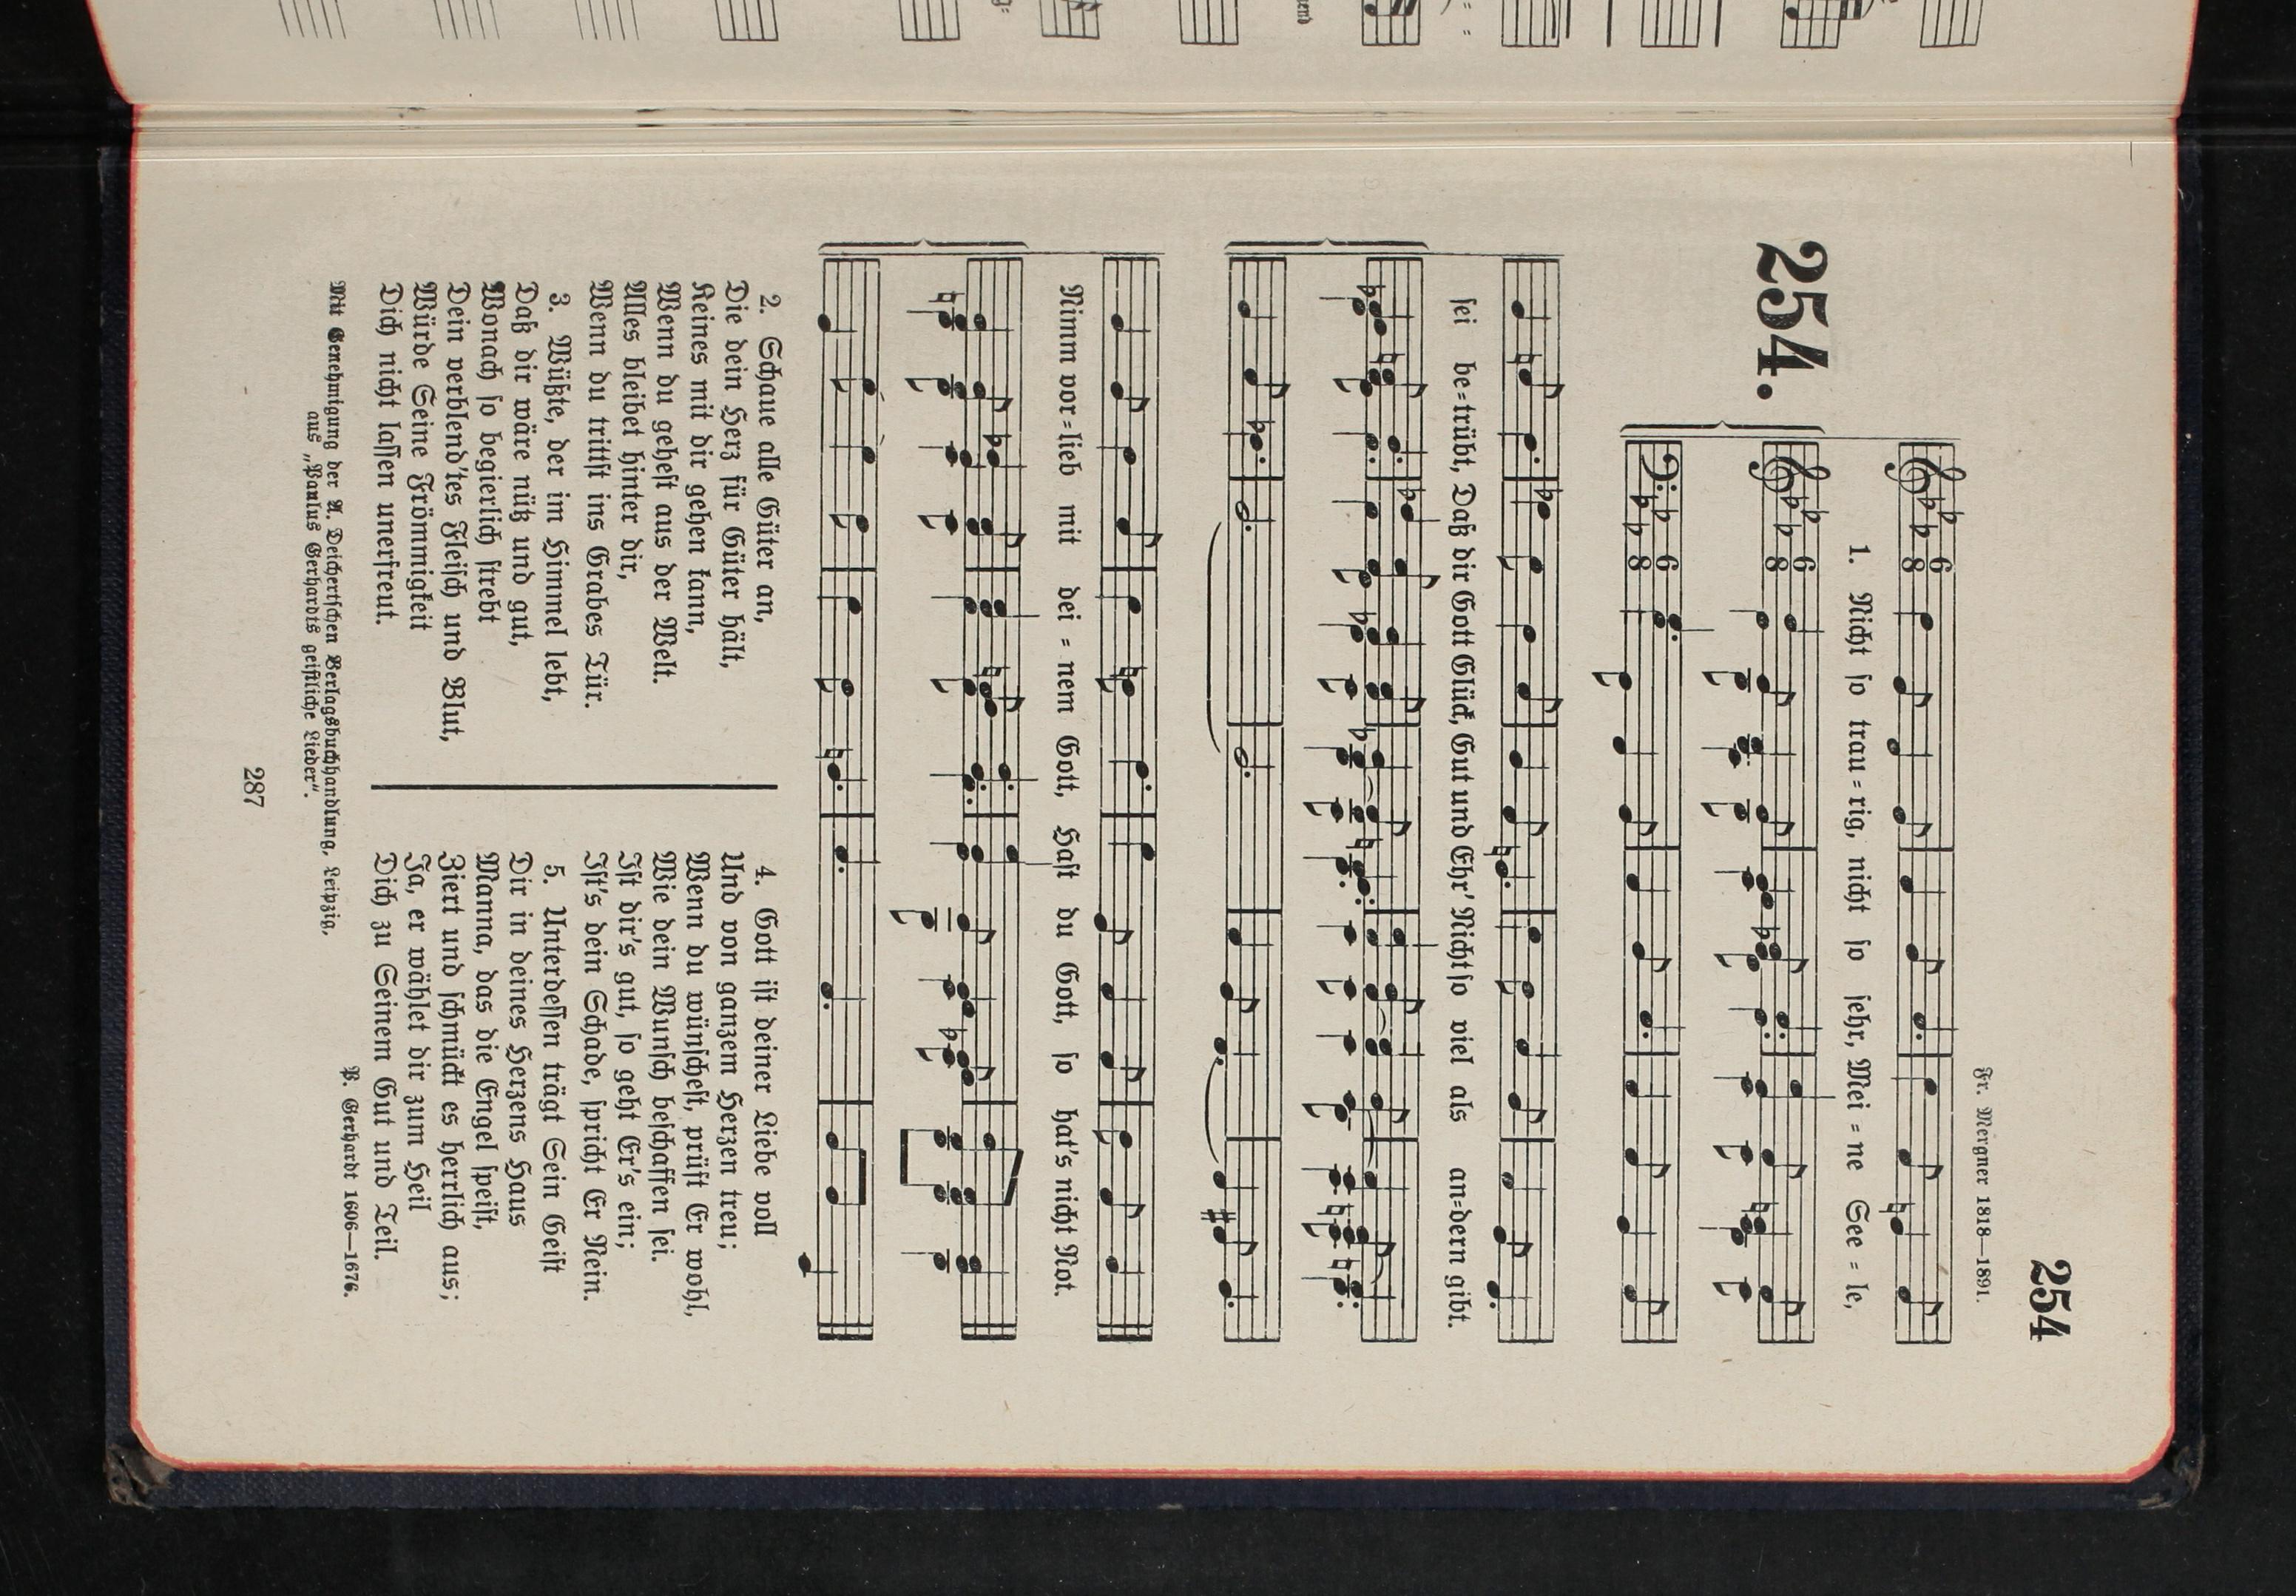 254
254.
Fr. Mergner 1818—1891.
1. Nicht so trau=rig, nicht so sehr, Mei=ne See=le,
sei be=trübt, Daß dir Gott Glück, Gut und Ehr' Nicht so viel als an=dern gibt.
Nimm vor=lieb mit dei=nem Gott, Hast du Gott, so hat's nicht Not.
2. Schaue alle Güter an,
Die dein Herz für Güter hält,
Keines mit dir gehen kann,
Wenn du gehest aus der Welt.
Alles bleibet hinter dir,
Wenn du trittst ins Grabes Tür.
3. Wüßte, der im Himmel lebt,
Daß dir wäre nütz und gut,
Wonach so begierlich strebt
Dein verblend'tes Fleisch und Blut,
Würde Seine Frömmigkeit
Dich nicht lassen unerfreut.
4. Gott ist deiner Liebe voll
Und von ganzem Herzen treu;
Wenn du wünschest, prüft Er wohl,
Wie dein Wunsch beschaffen sei.
Ist dir's gut, so geht Er's ein;
Ist's dein Schade, spricht Er Nein.
5. Unterdessen trägt Sein Geist
Dir in deines Herzens Haus
Manna, das die Engel speist,
Ziert und schmückt es herrlich aus;
Ja, er wählet dir zum Heil
Dich zu Seinem Gut und Teil.
P. Gerhardt 1606—1676.
Mit Genehmigung der A. Deichertschen Verlagsbuchhandlung, Leipzig,
aus „Paulus Gerhardts geistliche Lieder“.
287